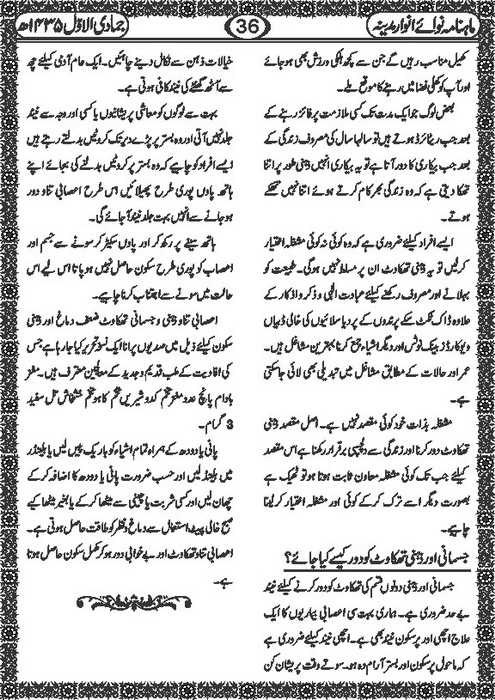 ماہنامہ نوائے انوارِ مدینہ
36
جمادی الاوّل ۱۴۳۵ھ
کھیل مناسب رہیں گے جن سے کچھ ہلکی ورزش بھی ہو جائے
اور آپ کو کھلی فضا میں رہنے کا موقع ملے۔
بعض لوگ جو ایک مدت تک کسی ملازمت پر فائز رہنے کے
بعد جب ریٹائرڈ ہوتے ہیں تو سالہا سال کی مصروف زندگی کے
بعد جب بیکاری کا دور آتا ہے تو یہ بیکاری انہیں ذہنی طور پر اتنا
تھکا دیتی ہے کہ وہ زندگی بھر کام کرتے ہوئے اتنا نہیں تھکے
ہوتے۔
ایسے افراد کیلئے ضروری ہے کہ وہ کوئی نہ کوئی مشغلہ اختیار
کر لیں تو یہ ذہنی تھکاوٹ ان پر مسلط نہیں ہوگی۔ طبیعت کو
بہلانے اور مصروف رکھنے کیلئے عبادت الٰہی و ذکر و اذکار کے
علاوہ ڈاک ٹکٹ سکے پرندوں کے پر دیا سلائیوں کی خالی ڈبیاں
ویو کارڈز بینک نوٹس اور دیگر اشیاء جمع کرنا بہترین مشاغل ہیں۔
عمر اور حالات کے مطابق مشاغل میں تبدیلی بھی لائی جاسکتی
ہے۔
مشغلہ بذات خود کوئی مقصد نہیں ہے۔ اصل مقصد ذہنی
تھکاوٹ دور کرنا اور زندگی سے دلچسپی برقرار رکھنا ہے اس مقصد
کیلئے جب تک کوئی مشغلہ معاون ثابت ہوتا ہو تو ٹھیک ہے
بصورت دیگر اسے ترک کر کے کوئی اور مشغلہ اختیار کر لینا
چاہیے۔
جسمانی اور ذہنی تھکاوٹ کو دور کیسے کیا جائے؟
جسمانی اور ذہنی دونوں قسم کی تھکاوٹ کو دور کرنے کیلئے نیند
بے حد ضروری ہے۔ ہماری بہت سی اعصابی بیماریوں کا ایک
علاج اچھی اور پرسکون نیند بھی ہے۔ اچھی نیند کیلئے ضروری ہے
کہ ماحول پرسکون اور بستر آرام دہ ہو۔ سوتے وقت پریشان کن
خیالات ذہن سے نکال دینے چاہئیں۔ ایک عام آدمی کیلئے چھ
سے آٹھ گھنٹے کی نیند کافی ہوتی ہے۔
بہت سے لوگوں کو معاشی پریشانیوں یا کسی اور وجہ سے نیند
جلد نہیں آتی اور وہ بستر پر پڑے دیر تک کروٹیں بدلتے رہتے ہیں
ایسے افراد کو چاہیے کہ وہ بستر پر کروٹیں بدلنے کی بجائے اپنے
ہاتھ پاؤں پوری طرح پھیلائیں اس طرح اعصابی تناؤ دور
ہو جانے سے انہیں بہت جلد نیند آ جائے گی۔
ہاتھ سینے پر رکھ کر اور پاؤں سکیڑ کر سونے سے جسم اور
اعصاب کو پوری طرح سکون حاصل نہیں ہو پاتا اس لیے اس
حالت میں سونے سے اجتناب کرنا چاہیے۔
اعصابی تناؤ ذہنی و جسمانی تھکاوٹ ضعف دماغ اور ذہنی
سکون کیلئے ذیل میں صدیوں پرانا ایک نسخہ تحریر کیا جا رہا ہے جس
کی افادیت کے طب قدیم و جدید کے معالجین معترف ہیں۔ مغز
بادام پانچ عدد مغز تخم کدو شیریں تخم کاہو تخم خشخاش تل سفید
3 گرام۔
پانی یا دودھ کے ہمراہ تمام اشیاء کو باریک پیس لیں یا بلینڈر
میں بلینڈ کر لیں اور حسب ضرورت پانی یا دودھ کا اضافہ کر کے
چھان لیں اور کسی شربت یا چینی سے میٹھا کر کے یا بغیر میٹھا کیے
صبح خالی پیٹ استعمال سے دماغ و نظر کو طاقت حاصل ہوتی ہے۔
اعصابی تناؤ تھکاوٹ اور بے خوابی دور ہو کر مکمل سکون حاصل ہوتا
ہے۔